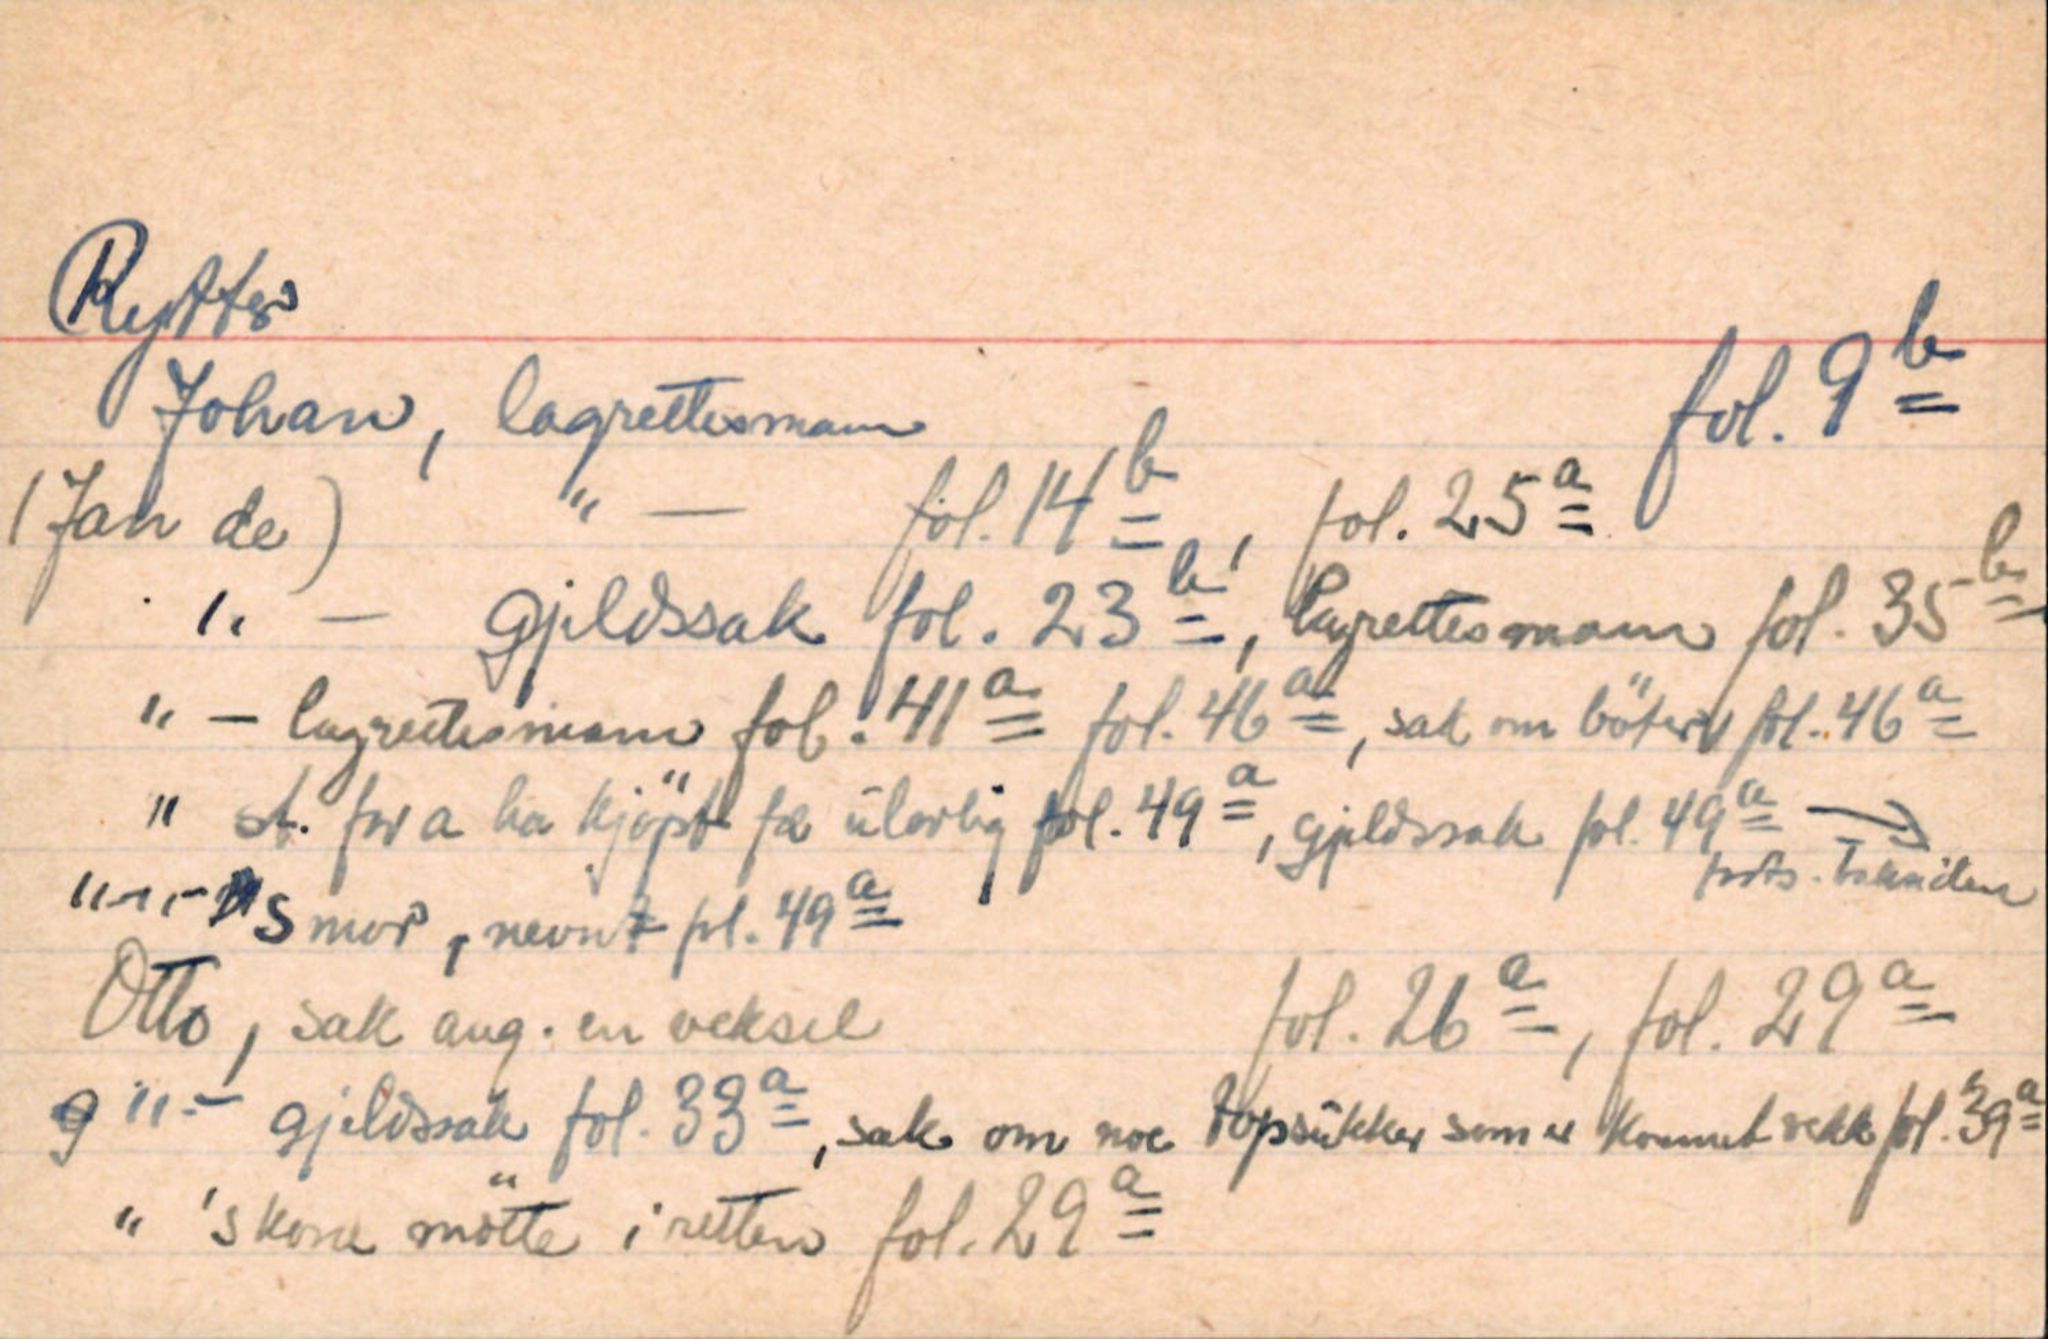 Rytter
Johan, lagrettesmann fol. 9b
(Jan de) " — fol. 14b, fol. 25a
" — gjeldssak fol. 23b, lagrettesmann fol. 35b
" — lagrettesmann fol. 41a fol. 46a, sak om böter fol. 46a
" st. for a ha kjöpt fæ ulovlig fol. 49a, gjeldssak fol. 49a →
forts. baksiden
" - " - s mor, nevnt fol. 49a
Otto, sak ang. en veksel fol. 26a, fol. 29a
" - gjeldssak fol. 33a, sak om noe topsükker som er kommet vekk fol. 39a
" 's kone mötte i retten fol. 29a